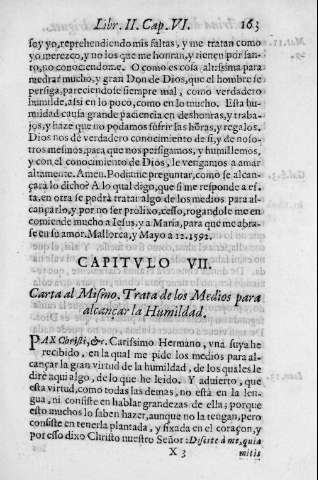 Libr. II. Cap. VI. 163
soy yo, reprehendiendo mis faltas, y me tratan como
yo merezco, y no los que me honran, y tienen por san-
to, no conociendome. O como es cosa altissima para
medrar mucho, y gran Don de Dios, que el hombre se
persiga, pareciendose siempre mal, como verdadero
humilde, assi en lo poco, como en lo mucho. Esta hu-
mildad causa grande paciencia en deshonras, y traba-
jos, y haze que no podamos sufrir las hõras, y regalos.
Dios nos dè verdadero conocimiento de si, y de noso-
tros mesmos, para que nos persigamos, y humillemos,
y con el conocimiento de Dios, le vengamos a amar
altamente. Amen. Podiame preguntar, como se alcan-
çarà lo dicho? A lo qual digo, que si me responde a es-
ta, en otra se podrà tratar algo de los medios para al-
cançarlo, y por no ser prolixo, cesso, rogandole me en-
comiende mucho a Iesus, y a Maria, para que me abra-
se en su amor. Mallorca, y Mayo a 12. 1592.
CAPITVLO VII.
Carta al Mismo. Trata de los Medios para
alcançar la Humildad.
PAX Christi, &c. Carissimo Hermano, vna suya he
recibido, en la qual me pide los medios para al-
cançar la gran virtud de la humildad, de los quales le
dirè aqui algo, de lo que he leido. Y advierto, que
esta virtud, como todas las demas, no està en la len-
gua, ni consiste en hablar grandezas de ella; porque
esto muchos lo saben hazer, aunque no la tengan, pero
consiste en tenerla plantada, y fixada en el coraçon, y
por esso dixo Christo nuestro Señor: Discite à me, quia
X 3 mitis